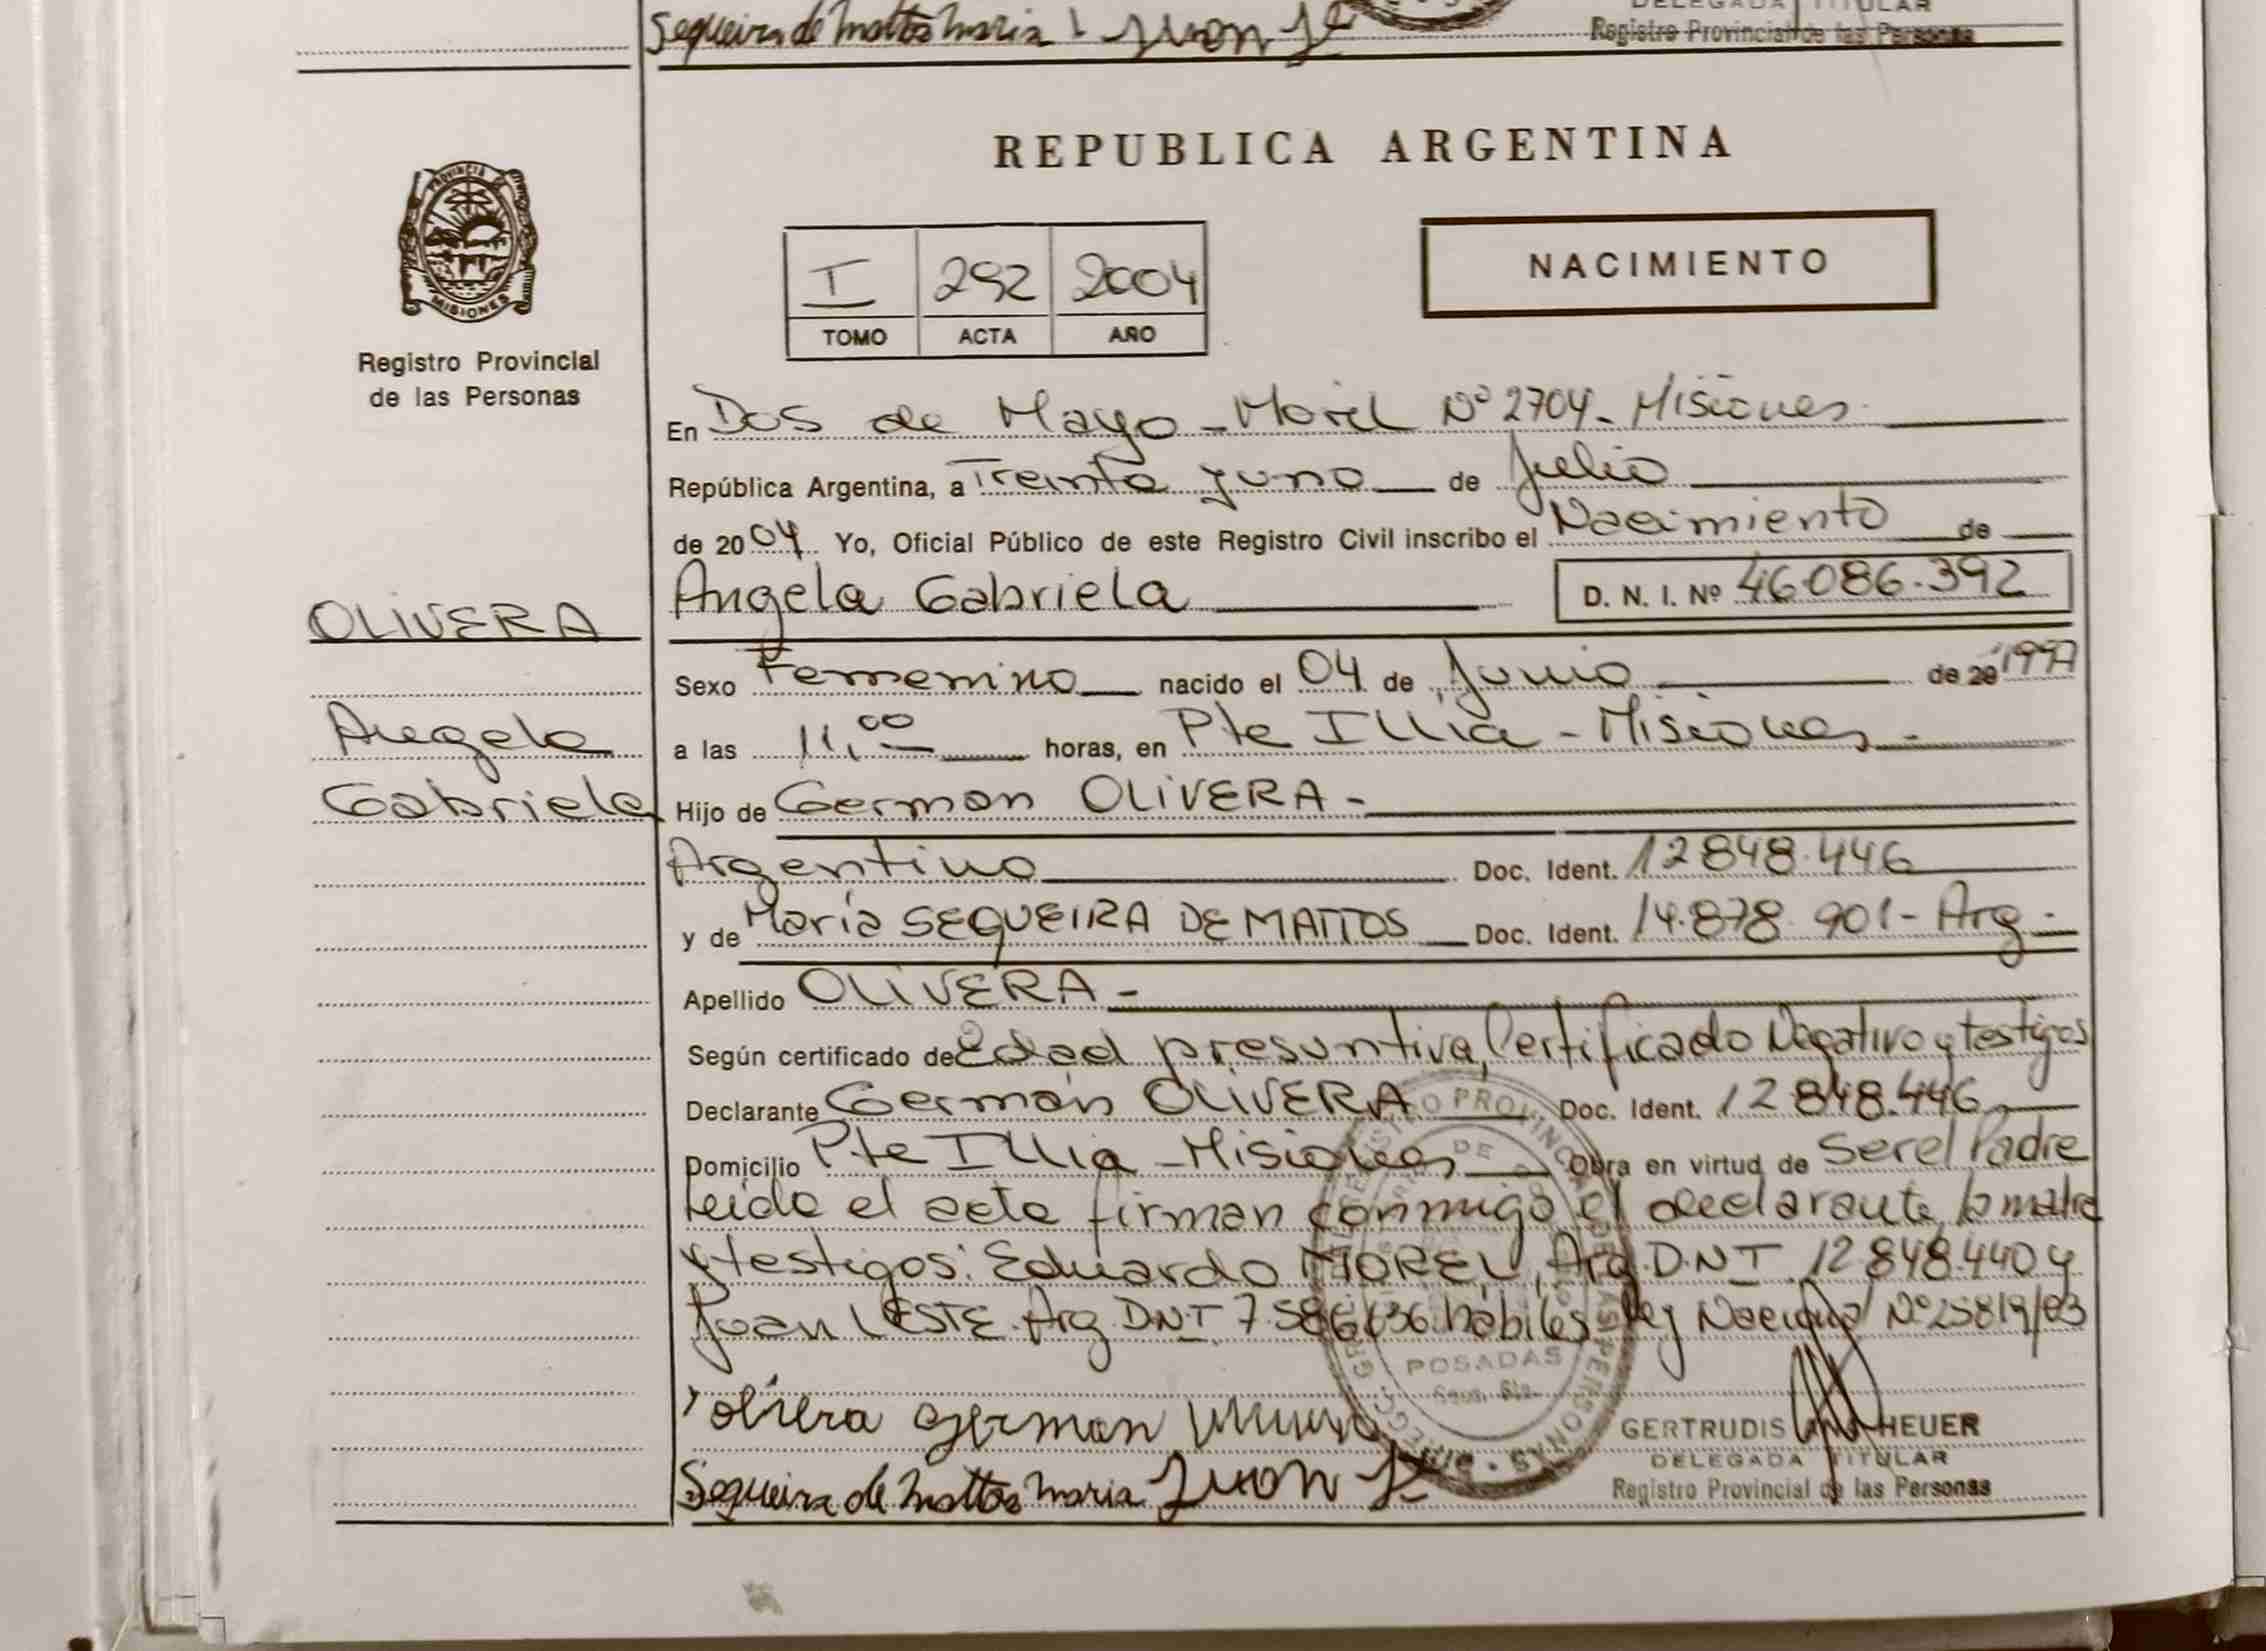 Sequeira de Mattos Maria Juan
DELEGADA TITULAR
Registro Provincial de las Personas
PROVINCIA
MISIONES
Registro Provincial
de las Personas
REPUBLICA ARGENTINA
I 292 2004
TOMO ACTA AÑO
NACIMIENTO
En Dos de Mayo - Movil Nº 2704 - Misiones
República Argentina, a Treinta y uno de Julio
de 2004 Yo, Oficial Público de este Registro Civil inscribo el Nacimiento de
OLIVERA
Angela Gabriela D. N. I. Nº 46.086.392
Sexo Femenino nacido el 04 de Junio de 20 1997
Angela
a las 11,00 horas, en Pte Illia - Misiones -
Gabriela
Hijo de German OLIVERA -
Argentino Doc. Ident. 12.848.446
y de María SEQUEIRA DE MATTOS Doc. Ident. 14.878.901 - Arg -
Apellido OLIVERA -
Según certificado de Edad presuntiva, Certificado Negativo y testigos
Declarante Germán OLIVERA Doc. Ident. 12.848.446
Domicilio Pte Illia - Misiones Obra en virtud de Ser el Padre
Leída el acta firman conmigo el declarante, la madre
y testigos: Eduardo MOREL, Arg. D.N.I 12.848.440 y
Juan LESTE. Arg. D.N.I 7.586.636 hábiles Ley Nacional Nº 25819/03
POSADAS
Olivera German
GERTRUDIS HEUER
DELEGADA TITULAR
Sequeira de Mattos Maria Juan
Registro Provincial de las Personas